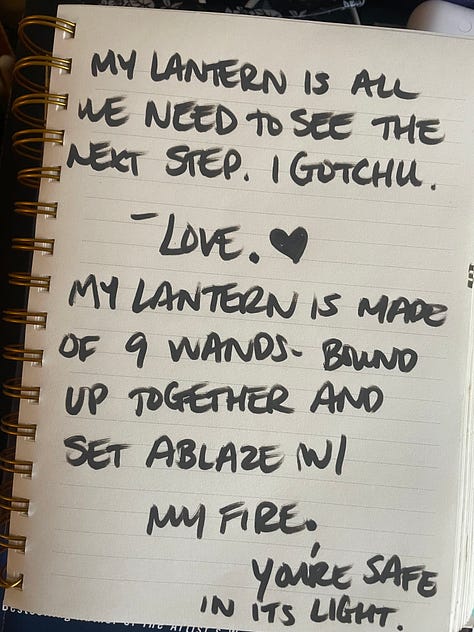 MY LANTERN IS ALL
WE NEED TO SEE THE
NEXT STEP. I GOTCHU.
- LOVE. ♥
MY LANTERN IS MADE
OF 9 WANDS- BOUND
UP TOGETHER AND
SET ABLAZE W/
MY FIRE.
YOU'RE SAFE
IN ITS LIGHT.